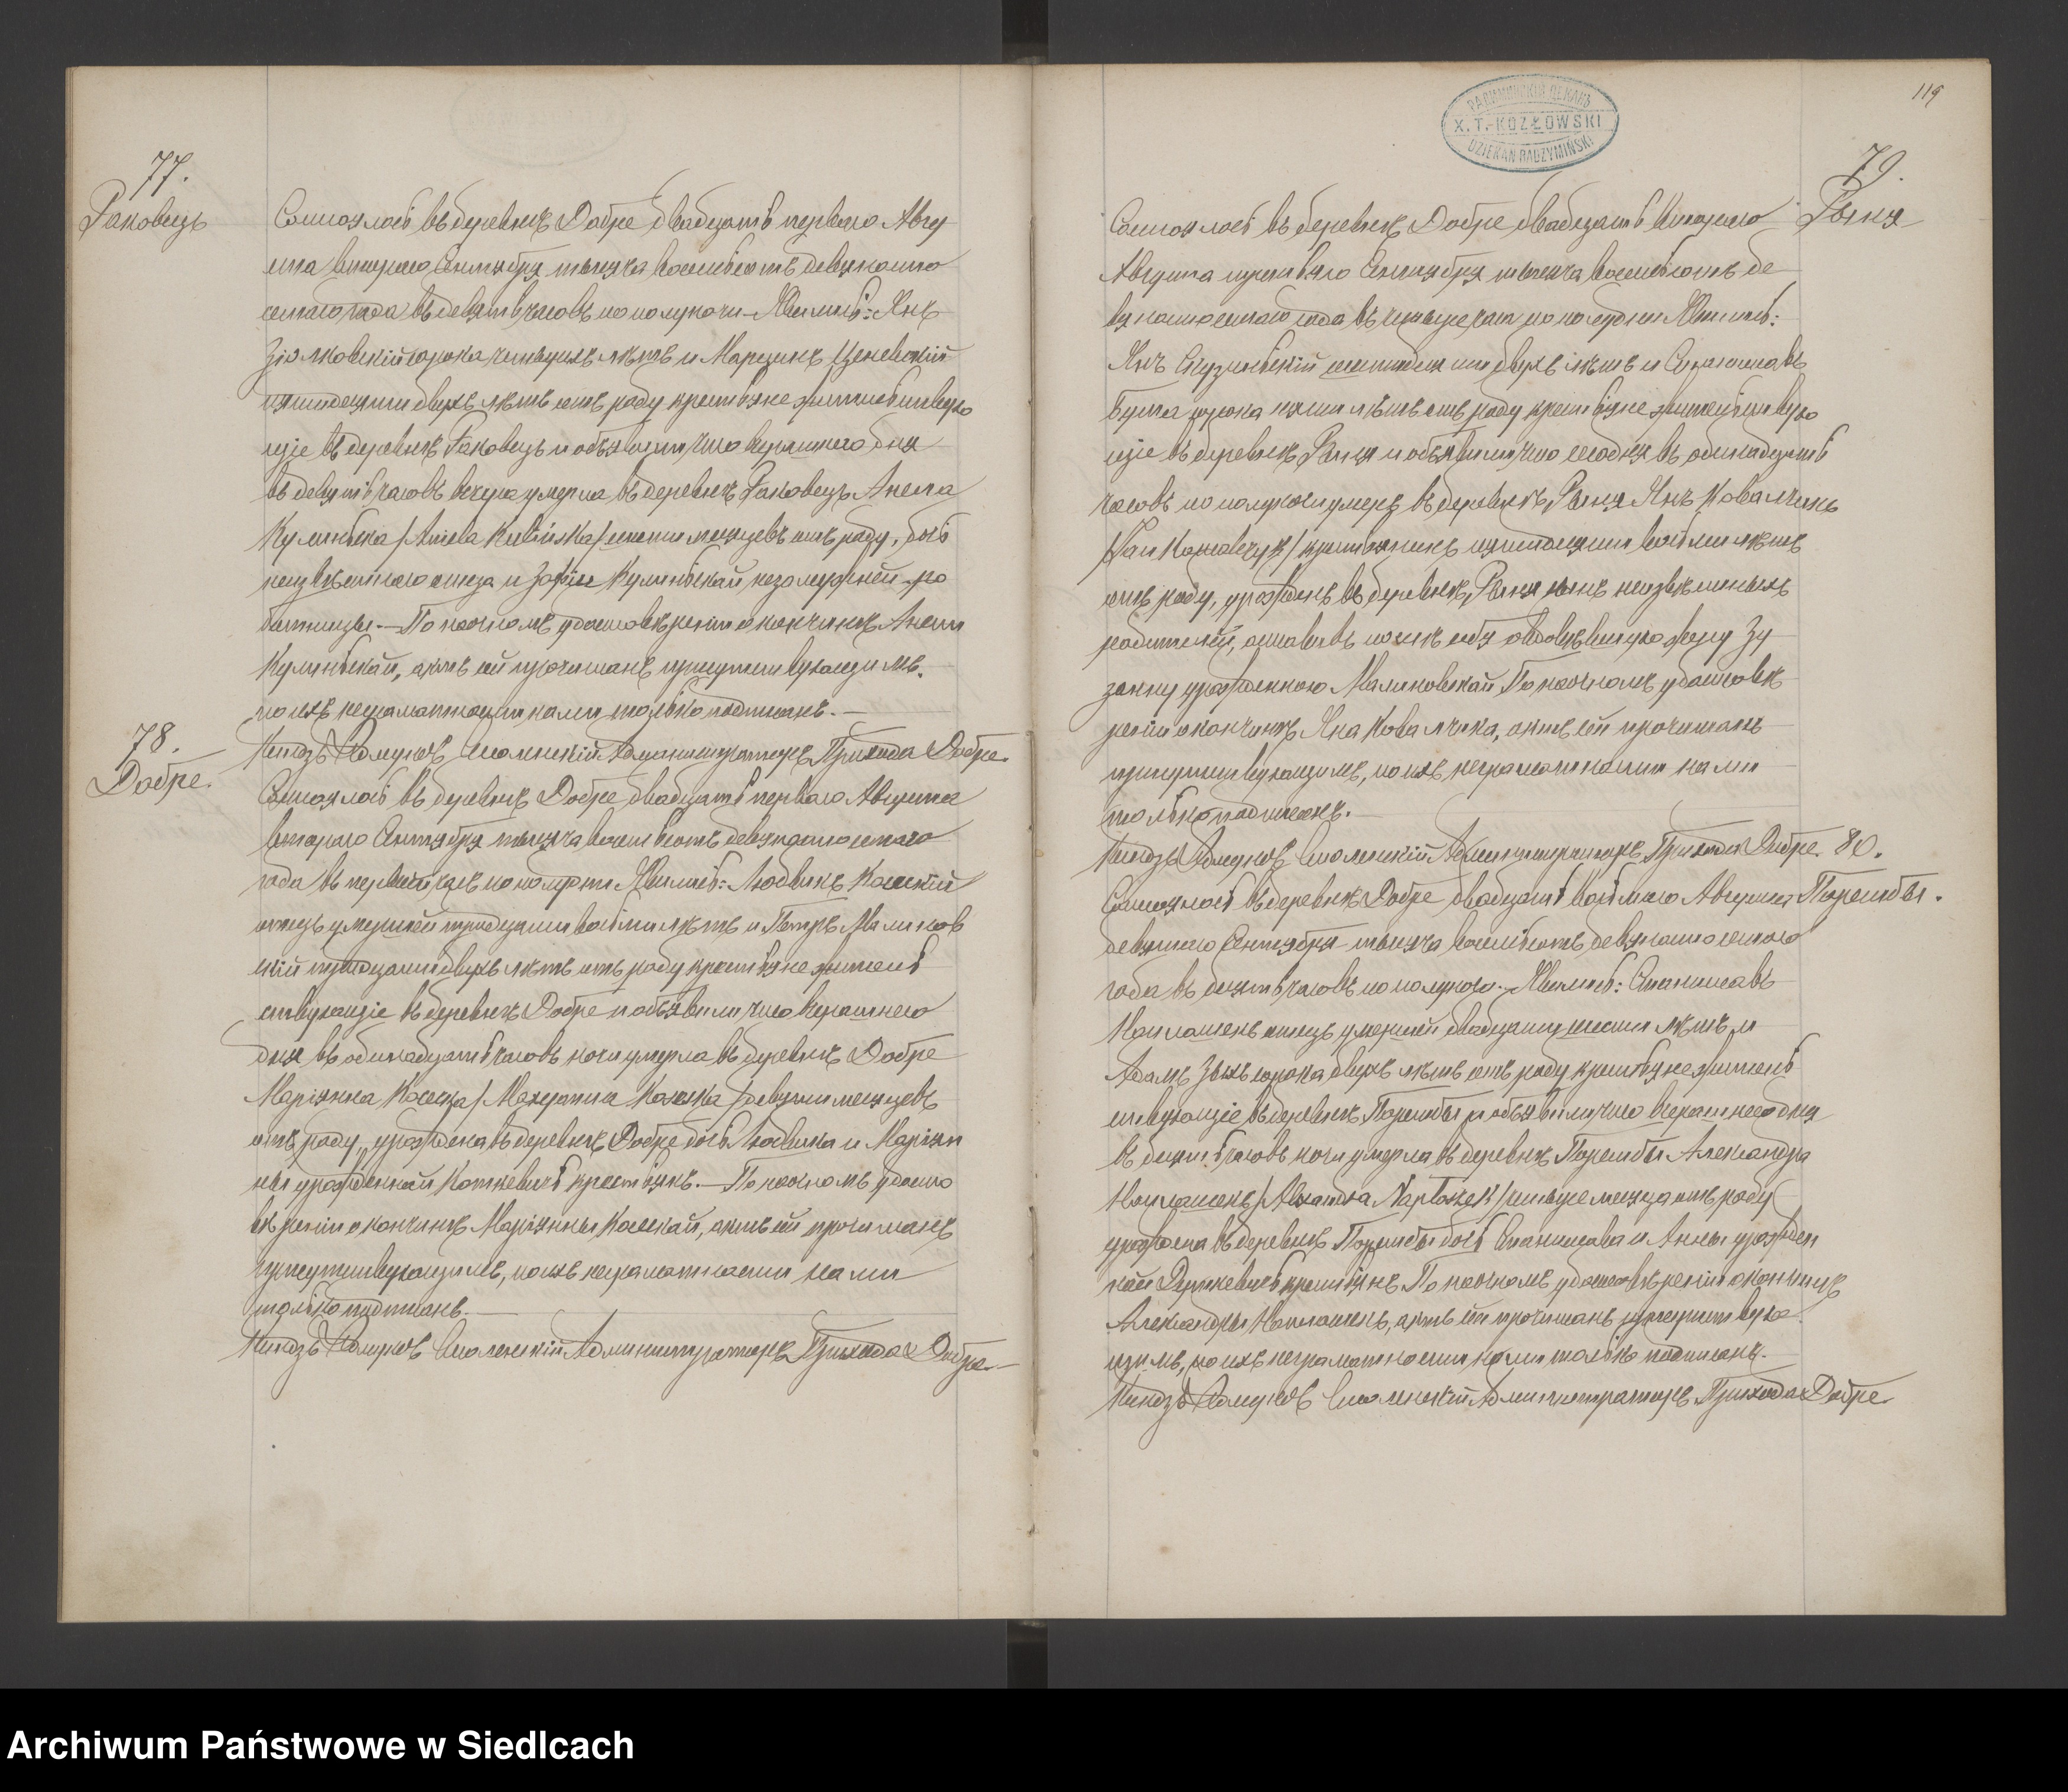 77.
Раковецъ
Состоялось въ деревнѣ Добре двадцать перваго Авгу
ста втораго Сентября тысяча восемьсотъ девяносто
шестаго года въ девять часовъ по полуночи. Явились: Янъ
Зіолковскій сорока четырехъ лѣтъ и Марцинъ Ценевскій
пятидесяти двухъ лѣтъ отъ роду крестьяне жительствую
щіе въ деревнѣ Раковецъ и объявили что вчерашнего дня
въ девять часовъ вечера умерла въ деревнѣ Раковецъ Анеля
Кулиньска /Aniela Kulińska/ шести мѣсяцевъ отъ роду, дочь
неизвѣстнаго отца и Зофіи Кулиньской незамужней ра
ботницы. — По настномъ удостовѣреніи о кончинѣ Анели
Кулиньской, актъ сей прочитанъ присутствующимъ,
по ихъ неграмотности нами только подписанъ. —
Ксіондзъ Смоленскій Администраторъ Прихода Добре.
78.
Добре.
Состоялось въ деревнѣ Добре двадцать перваго Августа
втораго Сентября тысяча восемьсотъ девяносто шестаго
года въ первый часъ по полудни Явились: Людвикъ Косскій
отецъ умершей тридцати восьми лѣтъ и Петръ Малинов
скій тридцати двухъ лѣтъ отъ роду крестьяне житель
ствующіе въ деревнѣ Добре и объявили что вчерашнего
дня въ одинадцать часовъ ночи умерла въ деревнѣ Добре
Маріянна / девяти мѣсяцевъ
отъ роду, урождена въ деревнѣ Добре дочь Людвика и Маріян
ны урожденной Коткевичъ крестьянъ. — По настномъ удосто
вѣреніи о кончинѣ Маріянны Косской, актъ сей прочитанъ
присутствующимъ, по ихъ неграмотности нами
только подписанъ. —
Ксіондзъ Смоленскій Администраторъ Прихода Добре
119
РАДИМИНСКІЙ ДЕКАНЪ
X. T. KOZŁOWSKI
DZIEKAN RADZYMIŃSKI
79.
Рыня
Состоялось въ деревнѣ Добре двадцать втораго
Августа третьяго Сентября тысяча восемьсотъ де
вяносто шестаго года въ четыре часа по полудни Явились:
Янъ шестидесяти двухъ лѣтъ и Станиславъ
сорока пяти лѣтъ отъ роду крестьяне жительствую
щіе въ деревнѣ Рыня и объявили что сегодня въ одинадцать
часовъ по полуночи умеръ въ деревнѣ Рыня Янъ Ковальчикъ
/Jan Kowalczyk/ крестьянинъ пятидесяти восьми лѣтъ
отъ роду, урожденъ въ деревнѣ Рыня сынъ неизвѣстныхъ
родителей, оставивъ послѣ себя овдовѣвшую жену Зу
занну урожденною Малиновской По настномъ удостовѣ
реніи о кончинѣ Яна Ковальчика, актъ сей прочитанъ
присутствующимъ, по ихъ неграмотности нами
только подписанъ. —
Ксіондзъ Смоленскій Администраторъ Прихода Добре.
80.
Порембы.
Состоялось въ деревнѣ Добре двадцать восьмаго Августа
девятаго Сентября тысяча восемьсотъ девяносто шестаго
года въ десять часовъ по полуночи. Явились: Станиславъ
отецъ умершей двадцати шести лѣтъ и
Адамъ Зыхъ сорока двухъ лѣтъ отъ роду крестьяне житель
ствующіе въ деревнѣ Порембы и объявили что вчерашнего дня
въ десять часовъ ночи умерла въ деревнѣ Порембы Александра
/ четыре мѣсяца отъ роду
урождена въ деревнѣ Порембы дочь Станислава и Анны урожден
ной крестьянъ. По настномъ удостовѣреніи о кончинѣ
Александры актъ сей прочитанъ присутствую
щимъ, по ихъ неграмотности нами только подписанъ. —
Ксіондзъ Смоленскій Администраторъ Прихода Добре.
Archiwum Państwowe w Siedlcach